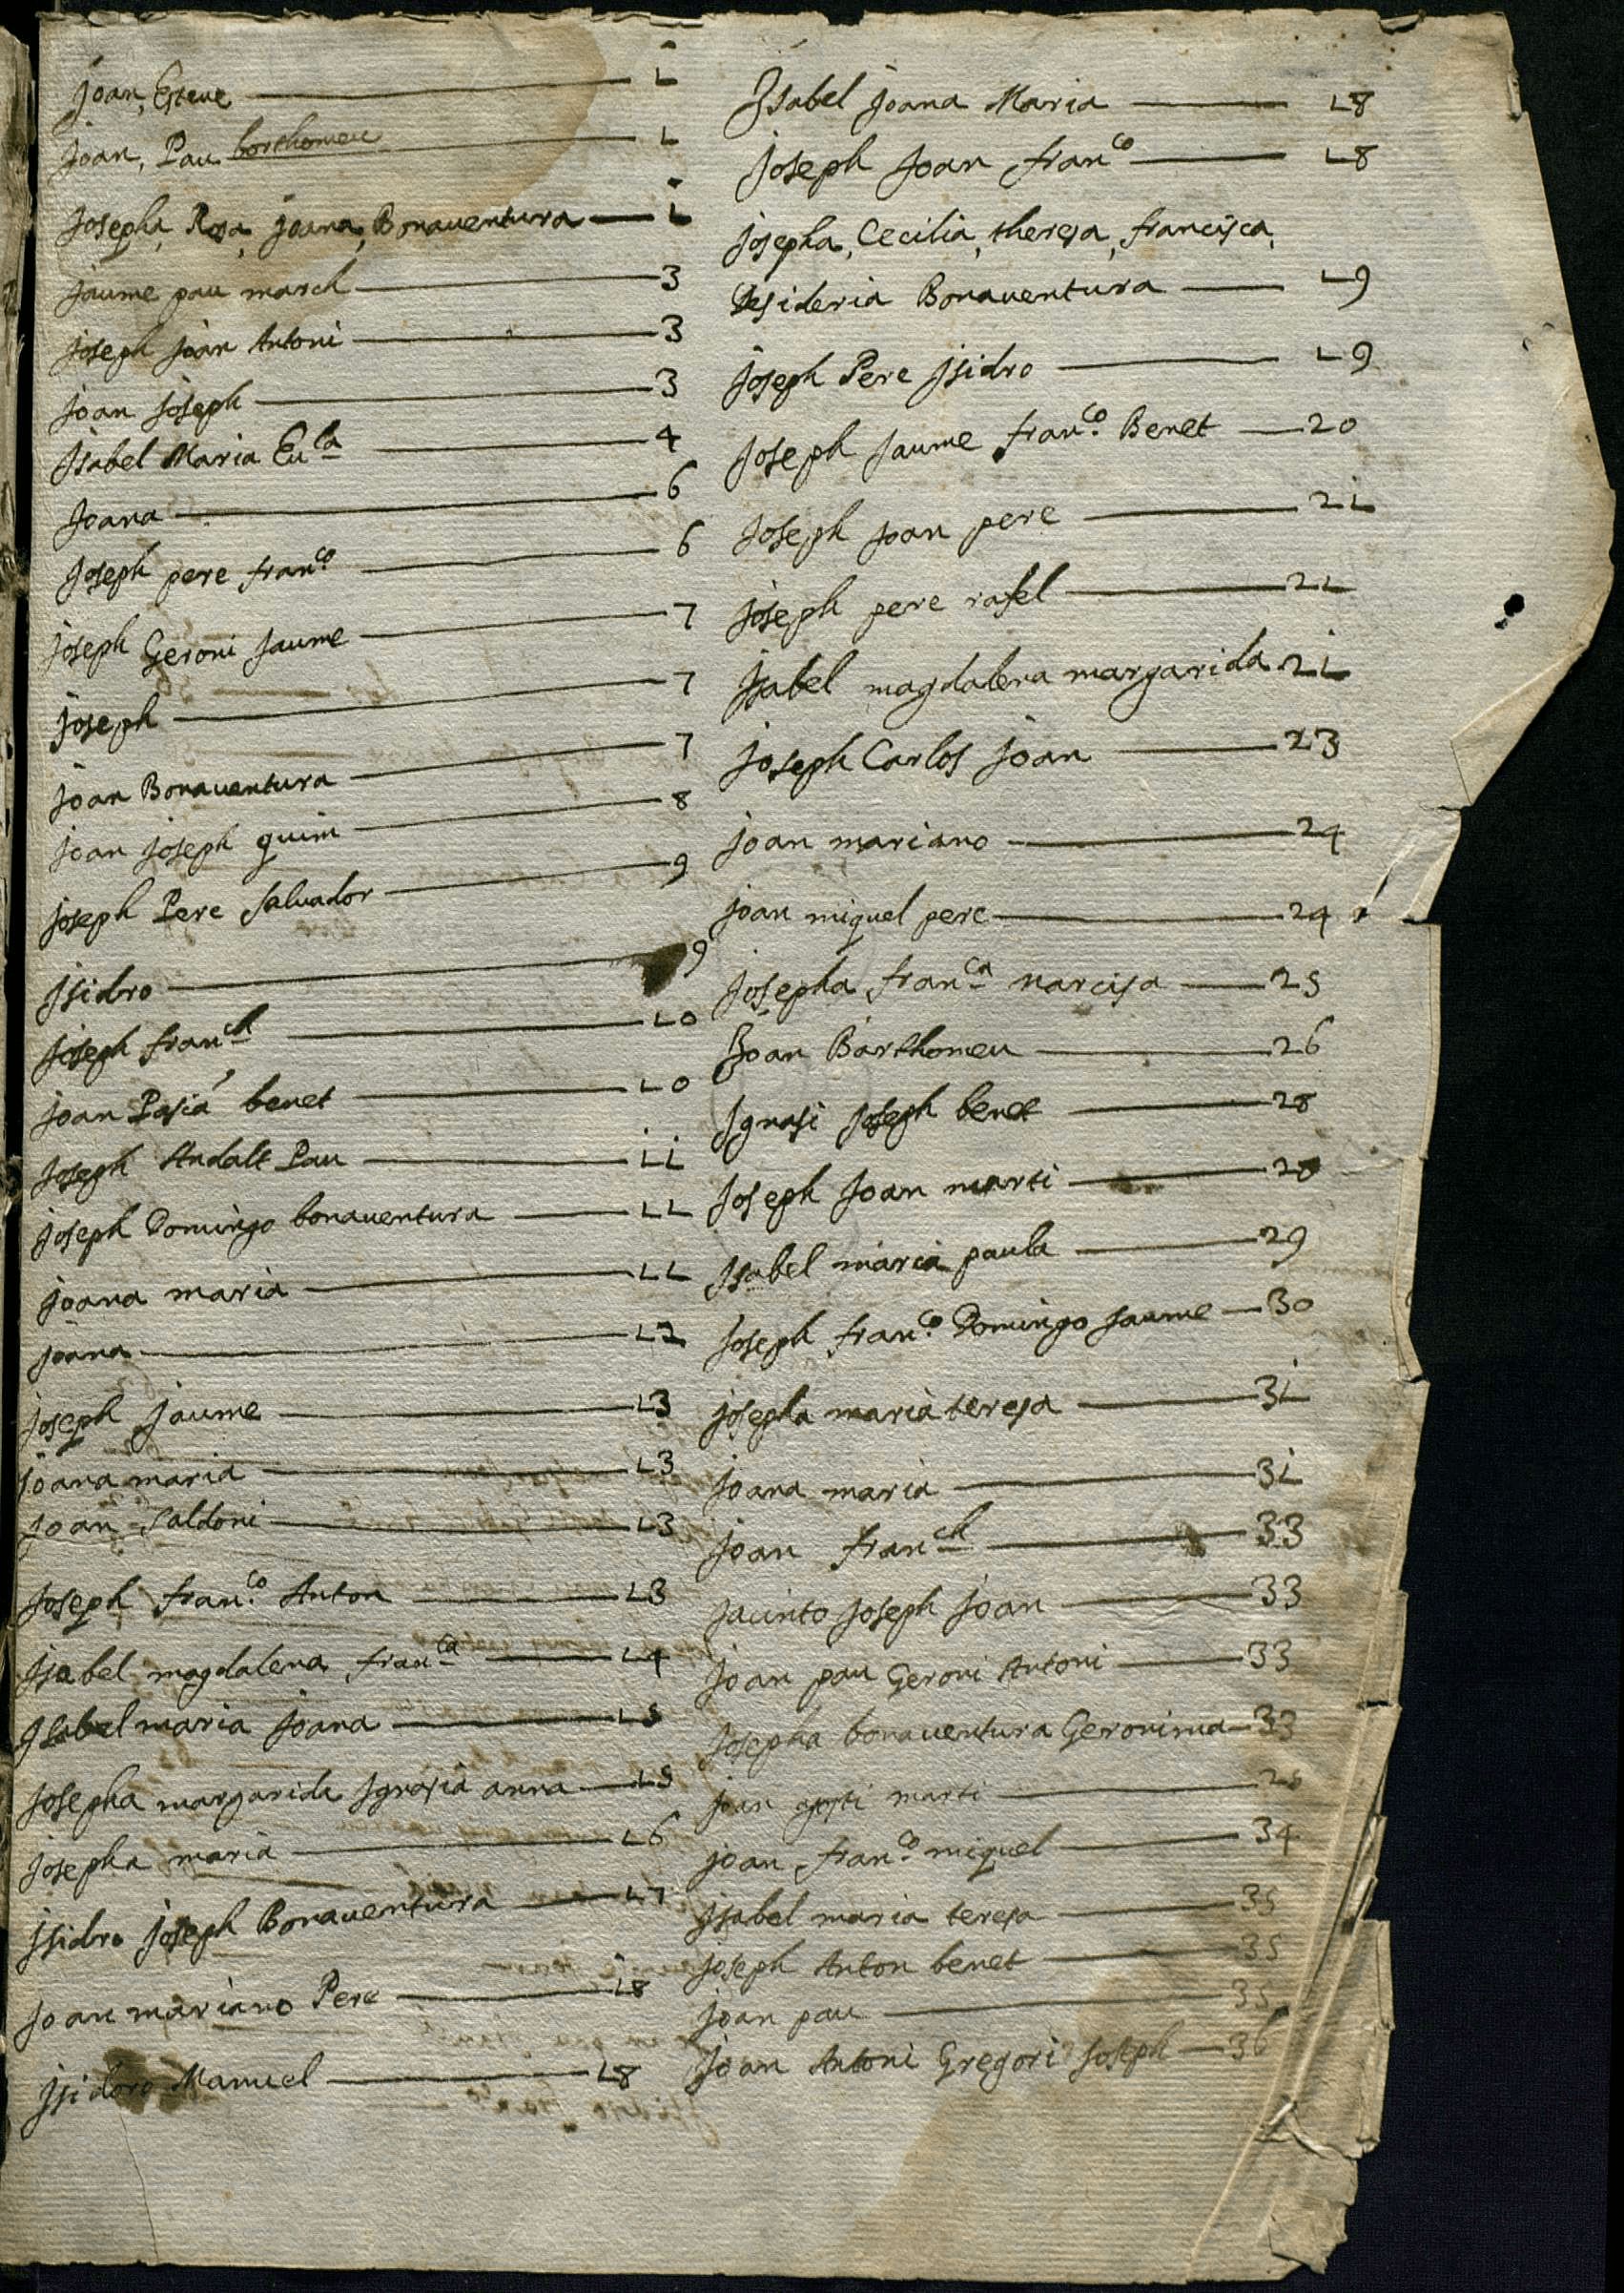 Joan, Esteve — 1
Joan, Pau borthomeu — 1
Josepha, Rosa, Joana, Bonaventura — 1
Jaume pau march — 3
Joseph Joan Antoni — 3
Joan Joseph — 3
Isabel Maria Eula — 4
Joana — 6
Joseph pere franco — 6
Joseph Geroni Jaume — 7
Joseph — 7
Joan Bonaventura — 7
Joan Joseph quim — 8
Joseph Pere Salvador — 9
Isidro — 9
Joseph franch — 10
Joan Pasia benet — 10
Joseph Andalt Pau — 11
Joseph Domingo bonaventura — 11
Joana maria — 11
Joana — 12
Joseph Jaume — 13
Joana maria — 13
Joan Saldoni — 13
Joseph franco. Anton — 13
Isabel magdalena franca — 14
Isabel maria Joana — 15
Josepha margarida Ignasia anna — 15
Josepha maria — 16
Isidro Joseph Bonaventura — 17
Joan mariano Pere — 18
Isidoro Manuel — 18
Isabel Joana Maria — 18
Joseph Joan franco — 18
Josepha, Cecilia, theresa, francisca,
Desideria Bonaventura — 19
Joseph Pere Isidro — 19
Joseph Jaume franco. Benet — 20
Joseph Joan pere — 21
Joseph pere rafel — 21
Isabel magdalena margarida 21
Joseph Carlos Joan — 23
Joan mariano — 24
Joan miquel pere — 24
Josepha franca narcisa — 25
Joan Barthomeu — 26
Ignasi Joseph benet — 28
Joseph Joan marti — 28
Isabel maria paula — 29
Joseph franco. Domingo Jaume — 30
Josepha maria teresa — 31
Joana maria — 31
Joan franch — 33
Jacinto Joseph Joan — 33
Joan pau Geroni Antoni — 33
Josepha bonaventura Geronima — 33
Joan agosti marti —
Joan franco miquel — 34
Isabel maria teresa — 35
Joseph Anton benet — 35
Joan pau — 35
Joan Antoni Gregori Joseph — 36